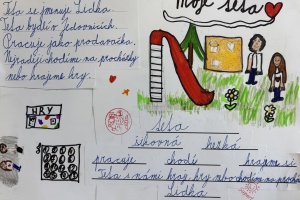 Teta se jmenuje Lidka.
Teta bydlí v Jedovnicích.
Pracuje jako prodavačka.
Nejraději chodíme na procházky
nebo hrajeme hry.
Moje teta
HRY
teta
šikovná hezká
pracuje chodí hrajeme si
Teta s námi hraje hry nebo chodíme na procházky
Lidka